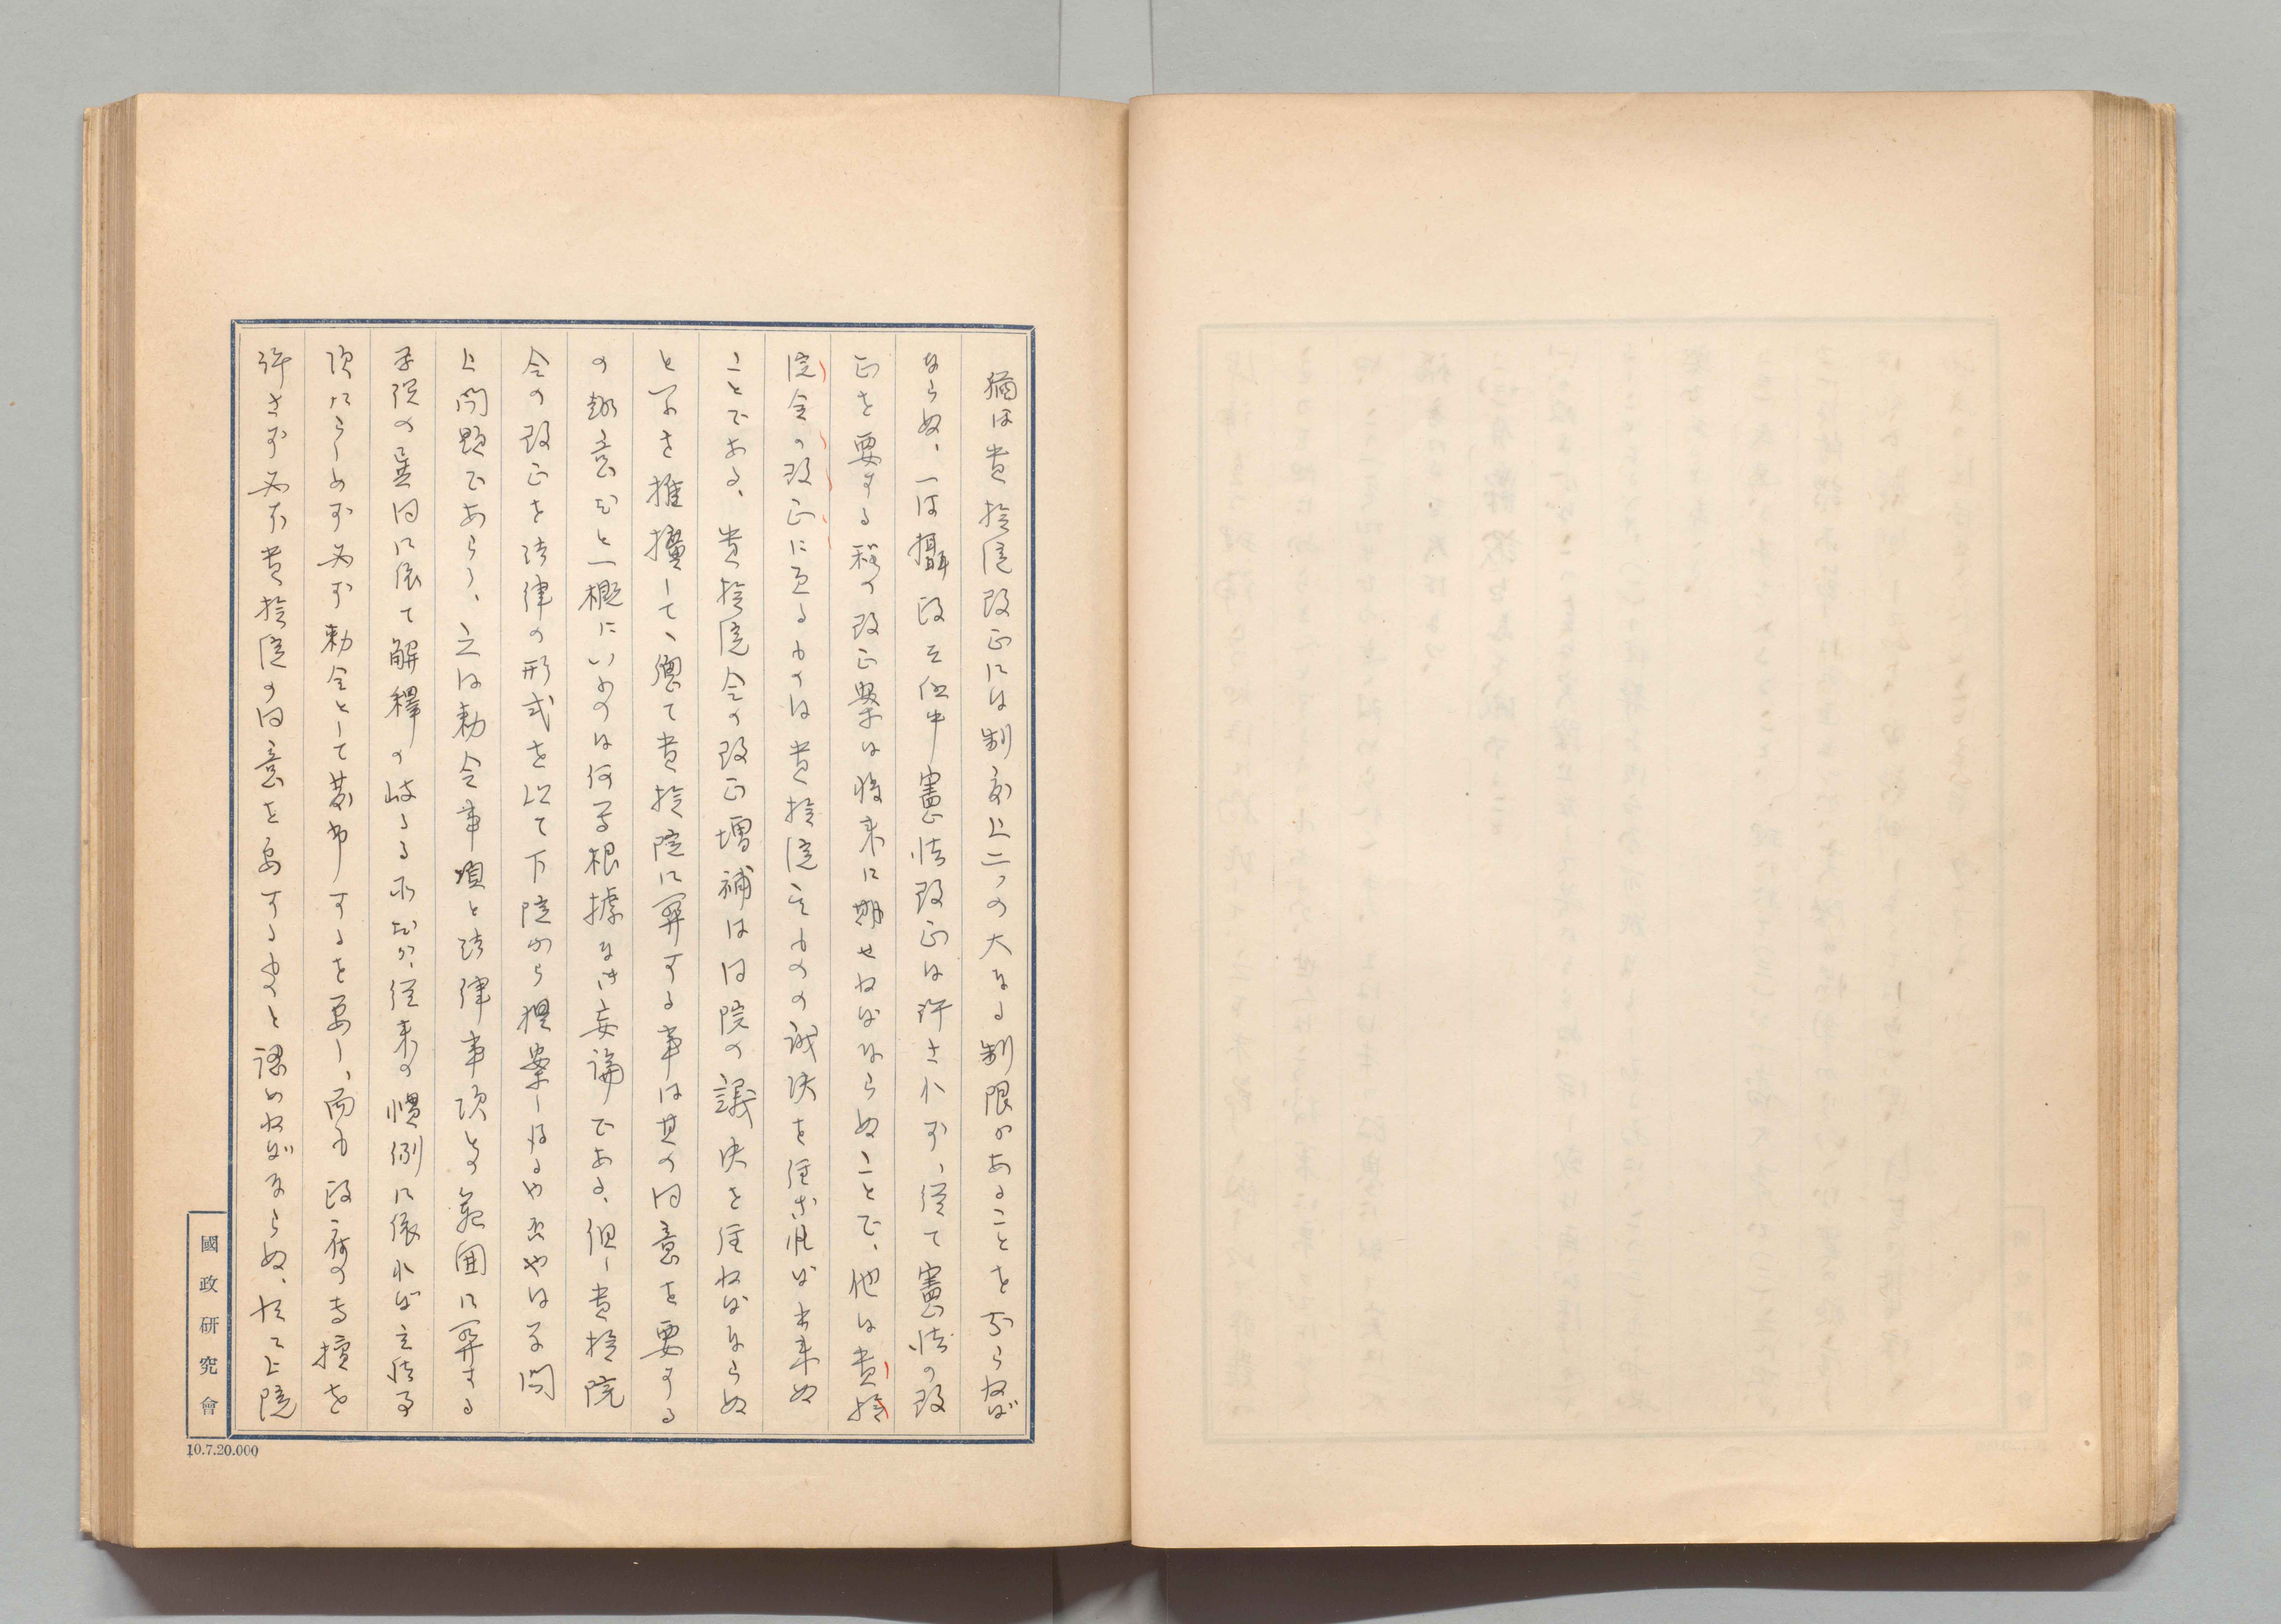 猶ほ貴族院改正には制度上二つの大なる制限があることを知らねば
ならぬ、一は攝政在任中憲法改正は許されず、從て憲法の改
正を要する種の改正案は將來に期せねばならぬことで、他は貴族
院令の改正に至るものは貴族院其ものの議決を經なければ出來ぬ
ことである、貴族院令の改正增補は同院の議決を經ねばならぬ
と云ふを推擴して、總て貴族院に關する事は其の同意を要する
の趣意だと一概にいふのは何等根據なき妄論である、但し貴族院
令の改正を法律の形式を以て下院から提案し得るや否やは學問
上問題であらう、之は勅令事項と法律事項との範囲に關する
學說の異同に依て解釋の岐るる所だが、從來の慣例に依れば立法事
項にらしめず必ず勅令として發布するを要し、而も政府の專擅を
許さず必ず貴族院の同意を要するものと認めねばならぬ、於て上院
國政研究會
10.7.20.000